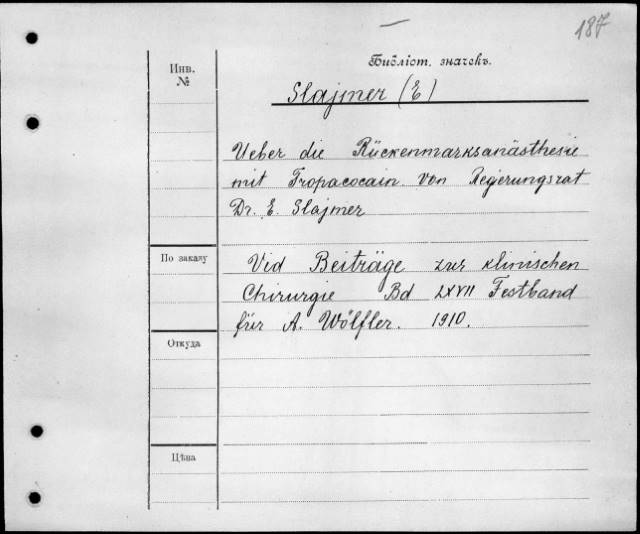 187
Инв. №
Библіот. значекъ.
Slajmer (E)
Ueber die Rückenmarksanästhesie
mit Tropacocain. Von Regierungsrat
Dr. E. Slajmer
По заказу
Vid Beiträge zur klinischen
Chirurgie Bd LXVII Festband
für A. Wölfler. 1910.
Откуда
Цѣна